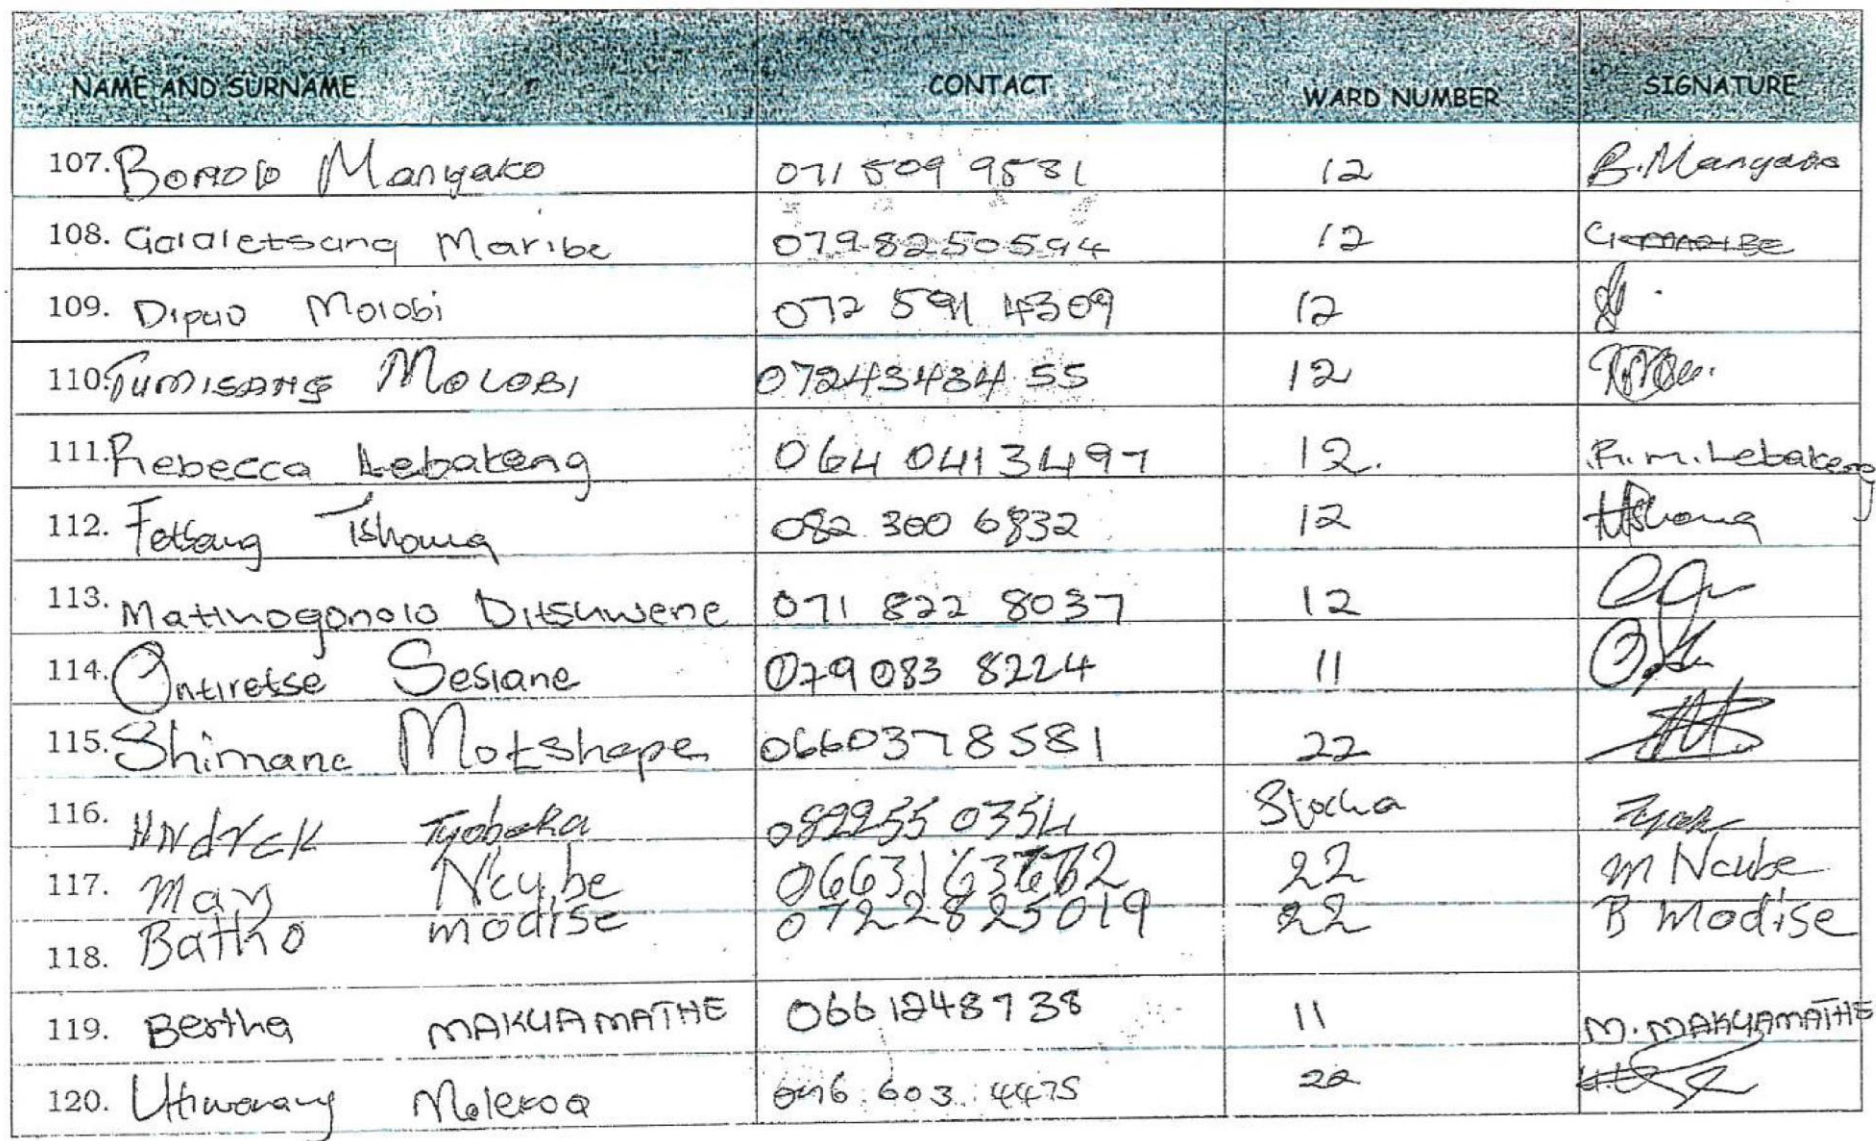 NAME AND SURNAME CONTACT WARD NUMBER SIGNATURE
107. Bomolo Manyako 071 509 9581 12 B. Manyako
108. Galaletsang Maribe 0798250594 12 G. MARIBE
109. Dipuo Molobi 072 591 4309 12
110. Tumisang Molobi 0724343455 12
111. Rebecca Lebakeng 064 0413497 12. R.m. Lebakeng
112. Tshoma 082 300 6832 12
113. Matlhogonolo Ditshwene 071 822 8037 12
114. Ontiretse Sesiane 079 083 8224 11
115. Shimane Motshepe 0660378581 22
116. 082255 0354
117. May Ncube 22 m Ncube
118. Batho modise 0722825019 22 B Modise
119. Bertha MAKUAMATHE 066 1248738 11 M. MAKUAMATHE
120. Molekoa 076 603 4475 22